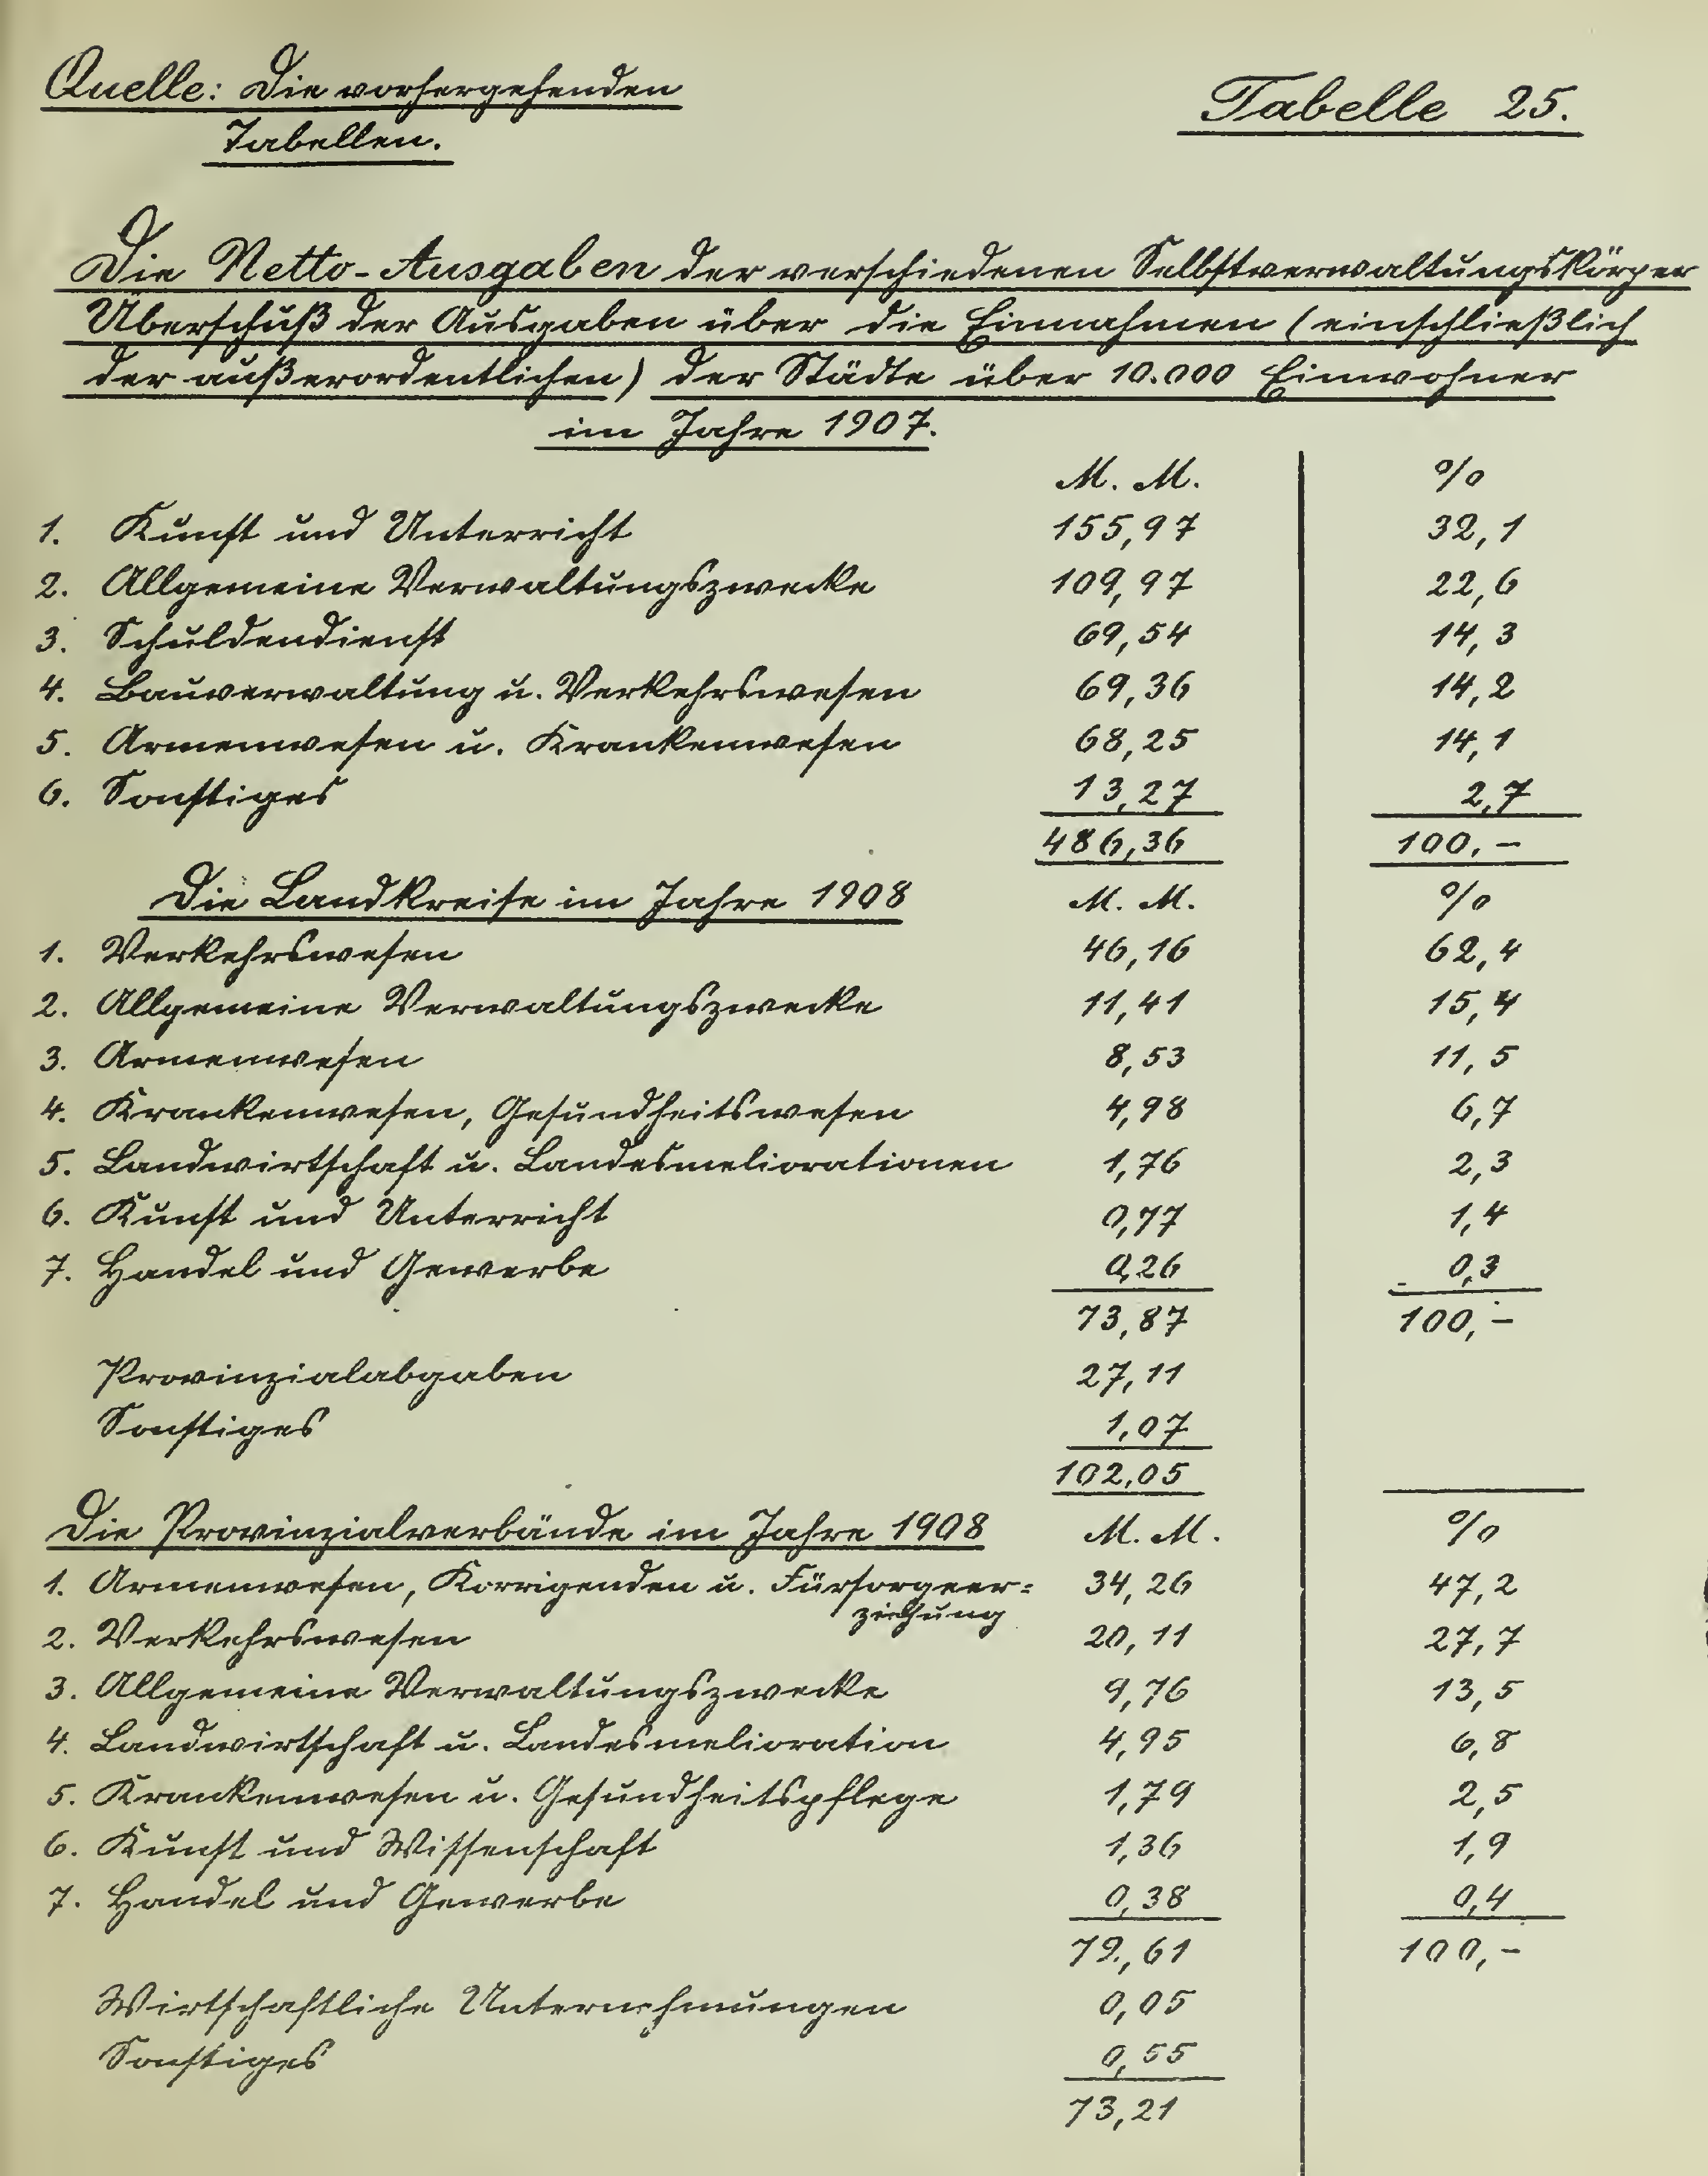 Quelle: Die vorhergehenden
Tabellen.
Tabelle 25.
Die Netto-Ausgaben der verschiedenen Selbstverwaltungskörper
Überschuß der Ausgaben über die Einnahmen (einschließlich
der außerordentlichen) der Städte über 10.000 Einwohner
im Jahre 1907.
M. M. %
1. Kunst und Unterricht 155,97 32,1
2. Allgemeine Verwaltungszwecke 109,97 22,6
3. Schuldendienst 69,54 14,3
4. Bauverwaltung u. Verkehrswesen 69,36 14,2
5. Armenwesen u. Krankenwesen 68,25 14,1
6. Sonstiges 13,27 2,7
486,36 100,-
Die Landkreise im Jahre 1908 M. M. %
1. Verkehrswesen 46,16 62,4
2. Allgemeine Verwaltungszwecke 11,41 15,4
3. Armenwesen 8,53 11,5
4. Krankenwesen, Gesundheitswesen 4,98 6,7
5. Landwirtschaft u. Landesmeliorationen 1,76 2,3
6. Kunst und Unterricht 0,77 1,4
7. Handel und Gewerbe 0,26 0,3
73,87 100,-
Provinzialabgaben 27,11
Sonstiges 1,07
102,05
Die Provinzialverbände im Jahre 1908 M. M. %
1. Armenwesen, Korrigenden u. Fürsorgeer= 34,26 47,2
ziehung
2. Verkehrswesen 20,11 27,7
3. Allgemeine Verwaltungszwecke 9,76 13,5
4. Landwirtschaft u. Landesmelioration 4,95 6,8
5. Krankenwesen u. Gesundheitspflege 1,79 2,5
6. Kunst und Wissenschaft 1,36 1,9
7. Handel und Gewerbe 0,38 0,4
72,61 100,-
Wirtschaftliche Unternehmungen 0,05
Sonstiges 0,55
73,21